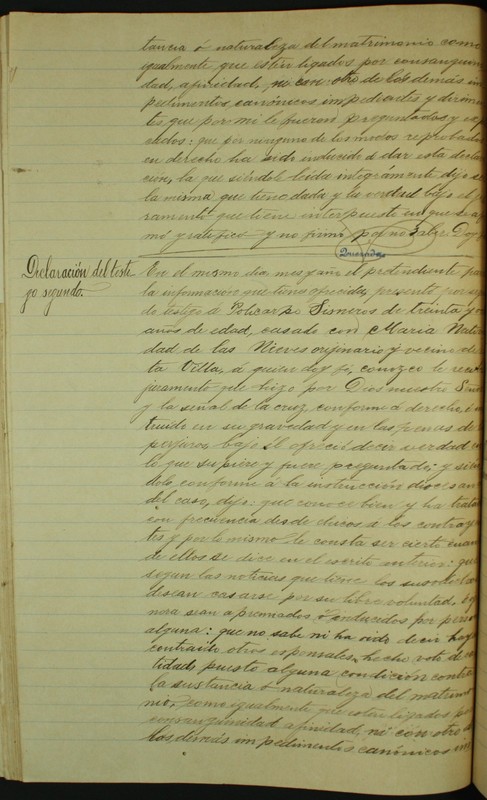 tancia ó naturaleza del matrimonio como
igualmente que estén ligados por consanguini
dad, afinidad, ni con otro de los demás im
pedimentos canónicos impedientes y dirimen
tes que por mí le fueron preguntados y expli
cados: que por ninguno de los medios reprobados
en derecho ha sido inducido á dar esta declara
cion, la que siéndole leida integramente dijo ser
la misma que tiene dada y la verdad bajo el ju
ramento que tiene interpuesto en que se afir
mó y ratificó y no firmó por no saber Doy
Quesada
Declaración del testi
go segundo.
En el mismo dia mes y año el pretendiente para
la informacion que tiene ofrecida, presentó por
de testigo á Policarpo Sisneros de treinta y
años de edad, casado con Maria Nativi
dad de las Nieves originario y vecino de es
ta Villa, á quien doy fé, conozco le recibí
juramento que hizo por Dios nuestro Señor
y la señal de la cruz, conforme á derecho, é ins
truido en su gravedad y en las penas de
perjuro, bajo él ofreció decir verdad en
lo que supiere y fuere preguntado; y sien
dolo conforme á la instrucción diocesana
del caso, dijo: que conoce bien y ha tratado
con frecuencia desde chicos á los contrayen
tes y por lo mismo le consta ser cierto cuanto
de ellos se dice en el escrito anterior: que
segun las noticias que tiene los susodichos
desean casarse por su libre voluntad, sin
sean apremiados ó inducidos por persona
alguna: que no sabe ni ha oido decir hayan
contraido otros esponsales, hecho voto de cas
tidad, puesto alguna condición contra
la sustancia ó naturaleza del matrimo
nio, como igualmente que esten ligados por
consanguinidad, afinidad, ni con otro de
los demás impedimentos canónicos im